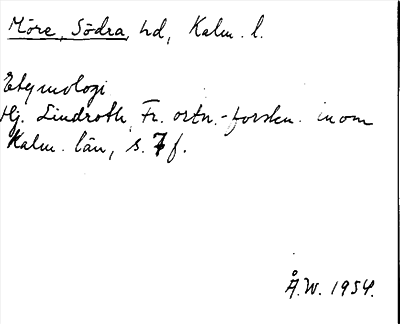 Möre, Södra, hd, Kalm. l.
Etymologi
Hj. Lindroth, Fr. ortn.-forskn. inom
Kalm. län, s. 7 f.
Å.W. 1954.